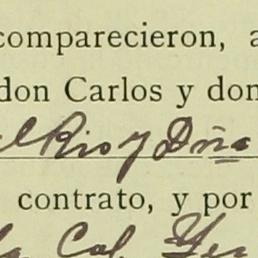 comparecieron, a
don Carlos y don
el Rio y Dña
contrato, y por
Cal. Yes